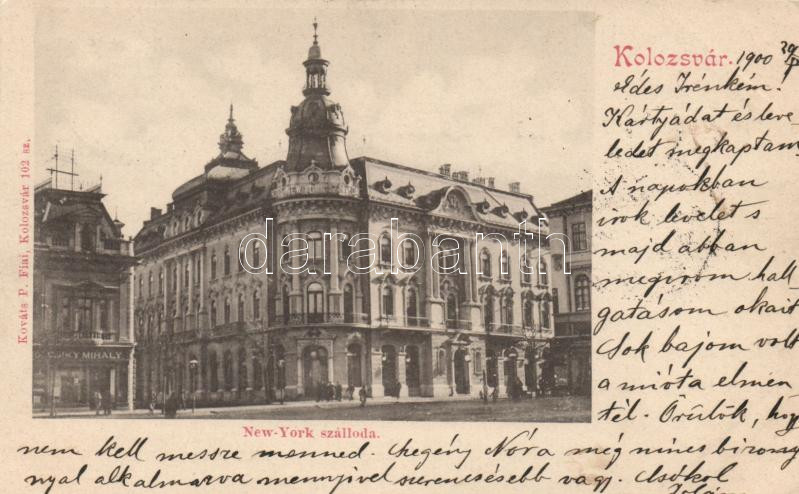 Kolozsvár. 1900
Édes Irénkém!
Kártyádat és leve-
ledet megkaptam.
A napokban
irok levelet s
majd abban
megirom hall
gatásom okait
Sok bajom volt
a mióta elmen
tél. Örülök, hogy
nem kell messze menned. Szegény Nóra még nincs bizony
nyal alkalmazva mennyivel szerencsésebb vagy. Csókol
Kováts P. Fiai, Kolozsvár 102 sz.
MIHÁLY
NEW YORK
darabanth
New-York szálloda.